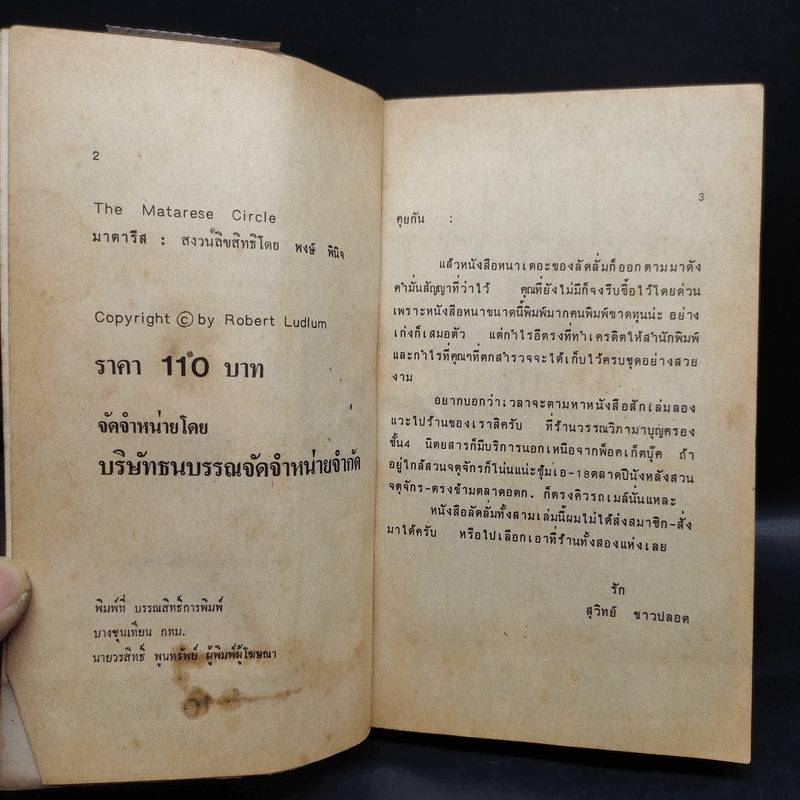 2
The Matarese Circle
มาตารีส : สงวนลิขสิทธิโดย พงษ์ พินิจ
Copyright © by Robert Ludlum
ราคา 110 บาท
จัดจำหน่ายโดย
บริษัทธนบรรณจัดจำหน่ายจำกัด
พิมพ์ที่ บรรณสิทธิ์การพิมพ์
บางขุนเทียน กทม.
นายวรสิทธิ์ พูนทรัพย์ ผู้พิมพ์ผู้โฆษณา
3
คุยกัน :
แล้วหนังสือหนาเตอะของลัดลั่มก็ออกตามมาดัง
คำมั่นสัญญาที่ว่าไว้ คุณที่ยังไม่มีก็จงรีบซื้อไว้โดยด่วน
เพราะหนังสือหนาขนาดนี้พิมพ์มากคนพิมพ์ขาดทุนน่ะ อย่าง
เก่งก็เสมอตัว แต่กำไรอีตรงที่ทำเครดิตให้สำนักพิมพ์
และกำไรที่คุณๆที่ตกสำรวจจะได้เก็บไว้ครบชุดอย่างสวย
งาม
อยากบอกว่าเวลาจะตามหาหนังสือสักเล่มลอง
แวะไปร้านของเราสิครับ ที่ร้านวรรณวิภามาบุญครอง
ชั้น4 นิตยสารก็มีบริการนอกเหนือจากพ็อคเก็ตบุ๊ค ถ้า
อยู่ใกล้สวนจตุจักรก็โน่นแน่ะซุ้มเอ-18ตลาดปีนังหลังสวน
จตุจักร-ตรงข้ามตลาดอตก. ก็ตรงคิวรถเมล์นั่นแหละ
หนังสือลัดลั่มทั้งสามเล่มนี้ผมไม่ได้ส่งสมาชิก-สั่ง
มาได้ครับ หรือไปเลือกเอาที่ร้านทั้งสองแห่งเลย
รัก
สุวิทย์ ขาวปลอด